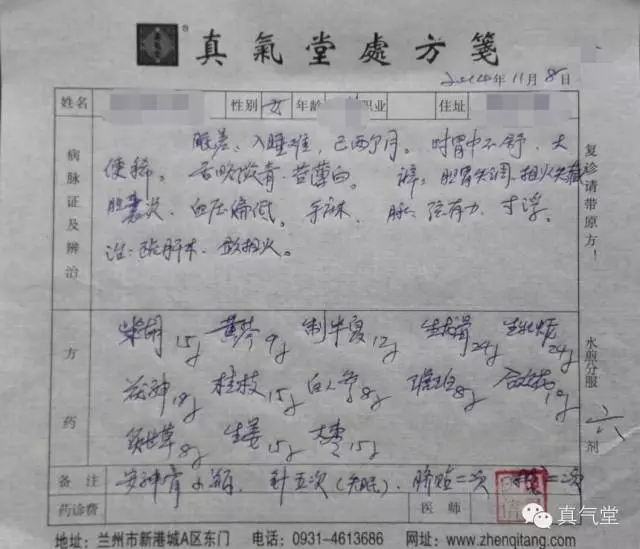 真氣堂處方箋
2014年11月8日
姓名 性别 女 年龄 职业 住址
眠差、入睡难,已两个月。时胃中不舒、大
便稀。舌略淡青、苔薄白。辨:胆胃失调,相火失痛
胆囊炎、血压偏低。手麻、脉:弦有力、寸浮。
治:疏肝木、敛相火。
病脉证及辨治
复诊请带原方!
方药
柴胡15g 黄芩9g 制半夏12g 生龙骨24g 生牡蛎24g
茯神18g 桂枝15g 白人参8g 琥珀8g 合欢花10g
炙甘草8g 生姜15g 大枣15g
水煎分服 六 剂
备注 安神膏 针五次(失眠)、脐贴二次 二次
药诊费 医师
地址:兰州市新港城A区东门 电话:0931-4613686 网址:www.zhenqitang.com
真气堂